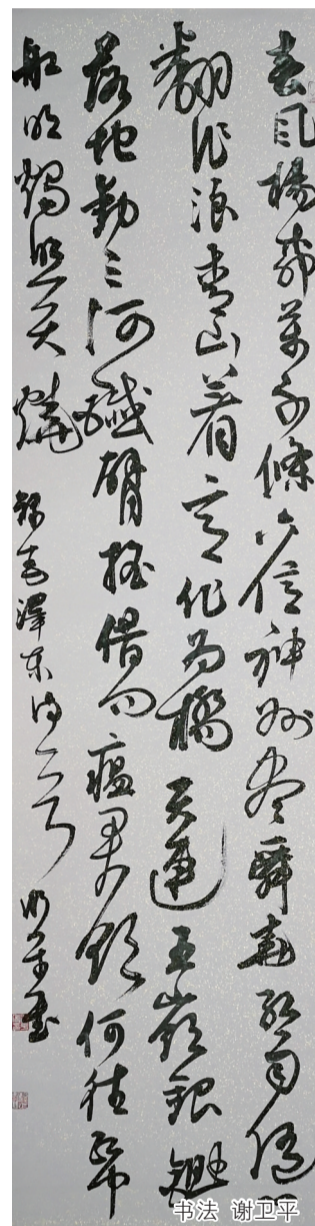 春風楊柳萬千條六億神州盡舜堯紅雨随心
翻作浪青山着意化为橋天連五嶺銀鋤
落地動三河鐵臂搖借问瘟君欲何往帋
船明燭照天燒 錄毛澤東诗一首
书法 谢卫平